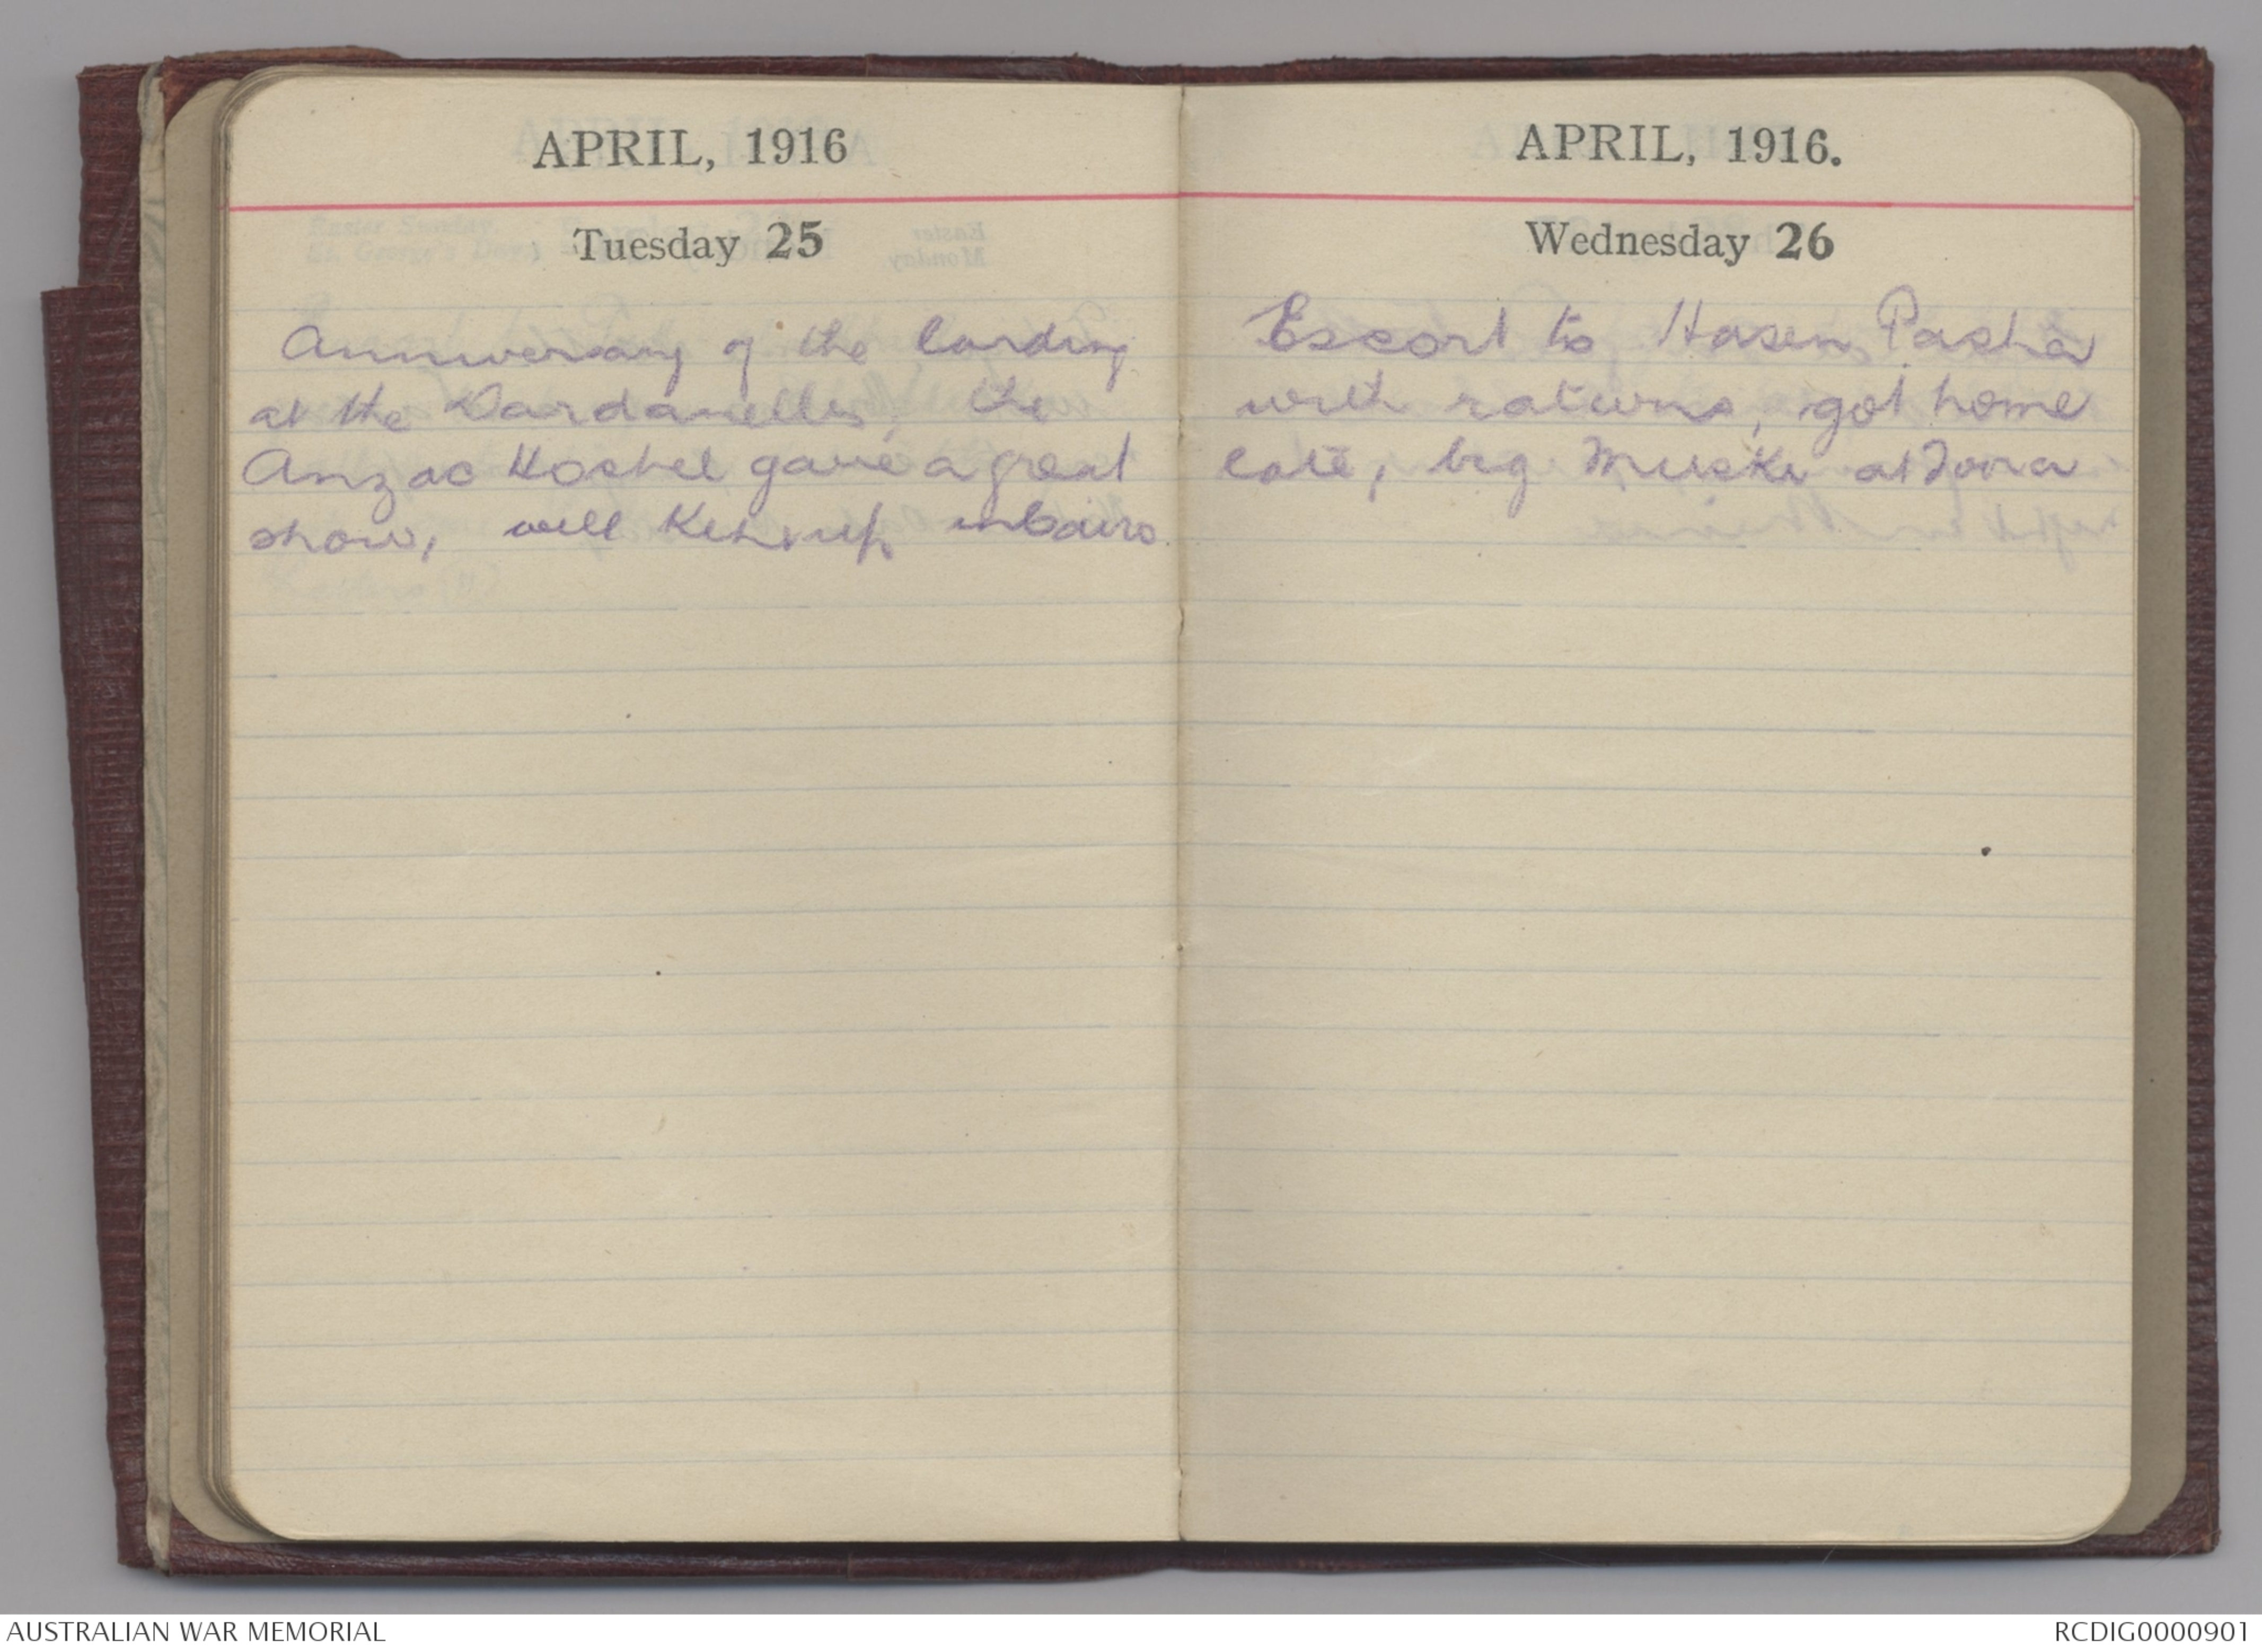 APRIL, 1916
Tuesday 25
Anniversary of the landing
at the Dardanelles, the
Anzac Hostel gave a great
show, well kept up in Cairo.
APRIL, 1916.
Wednesday 26
Escort to Hasen Pasha
with rations, got home
late, big at
AUSTRALIAN WAR MEMORIAL
RCDIG0000901